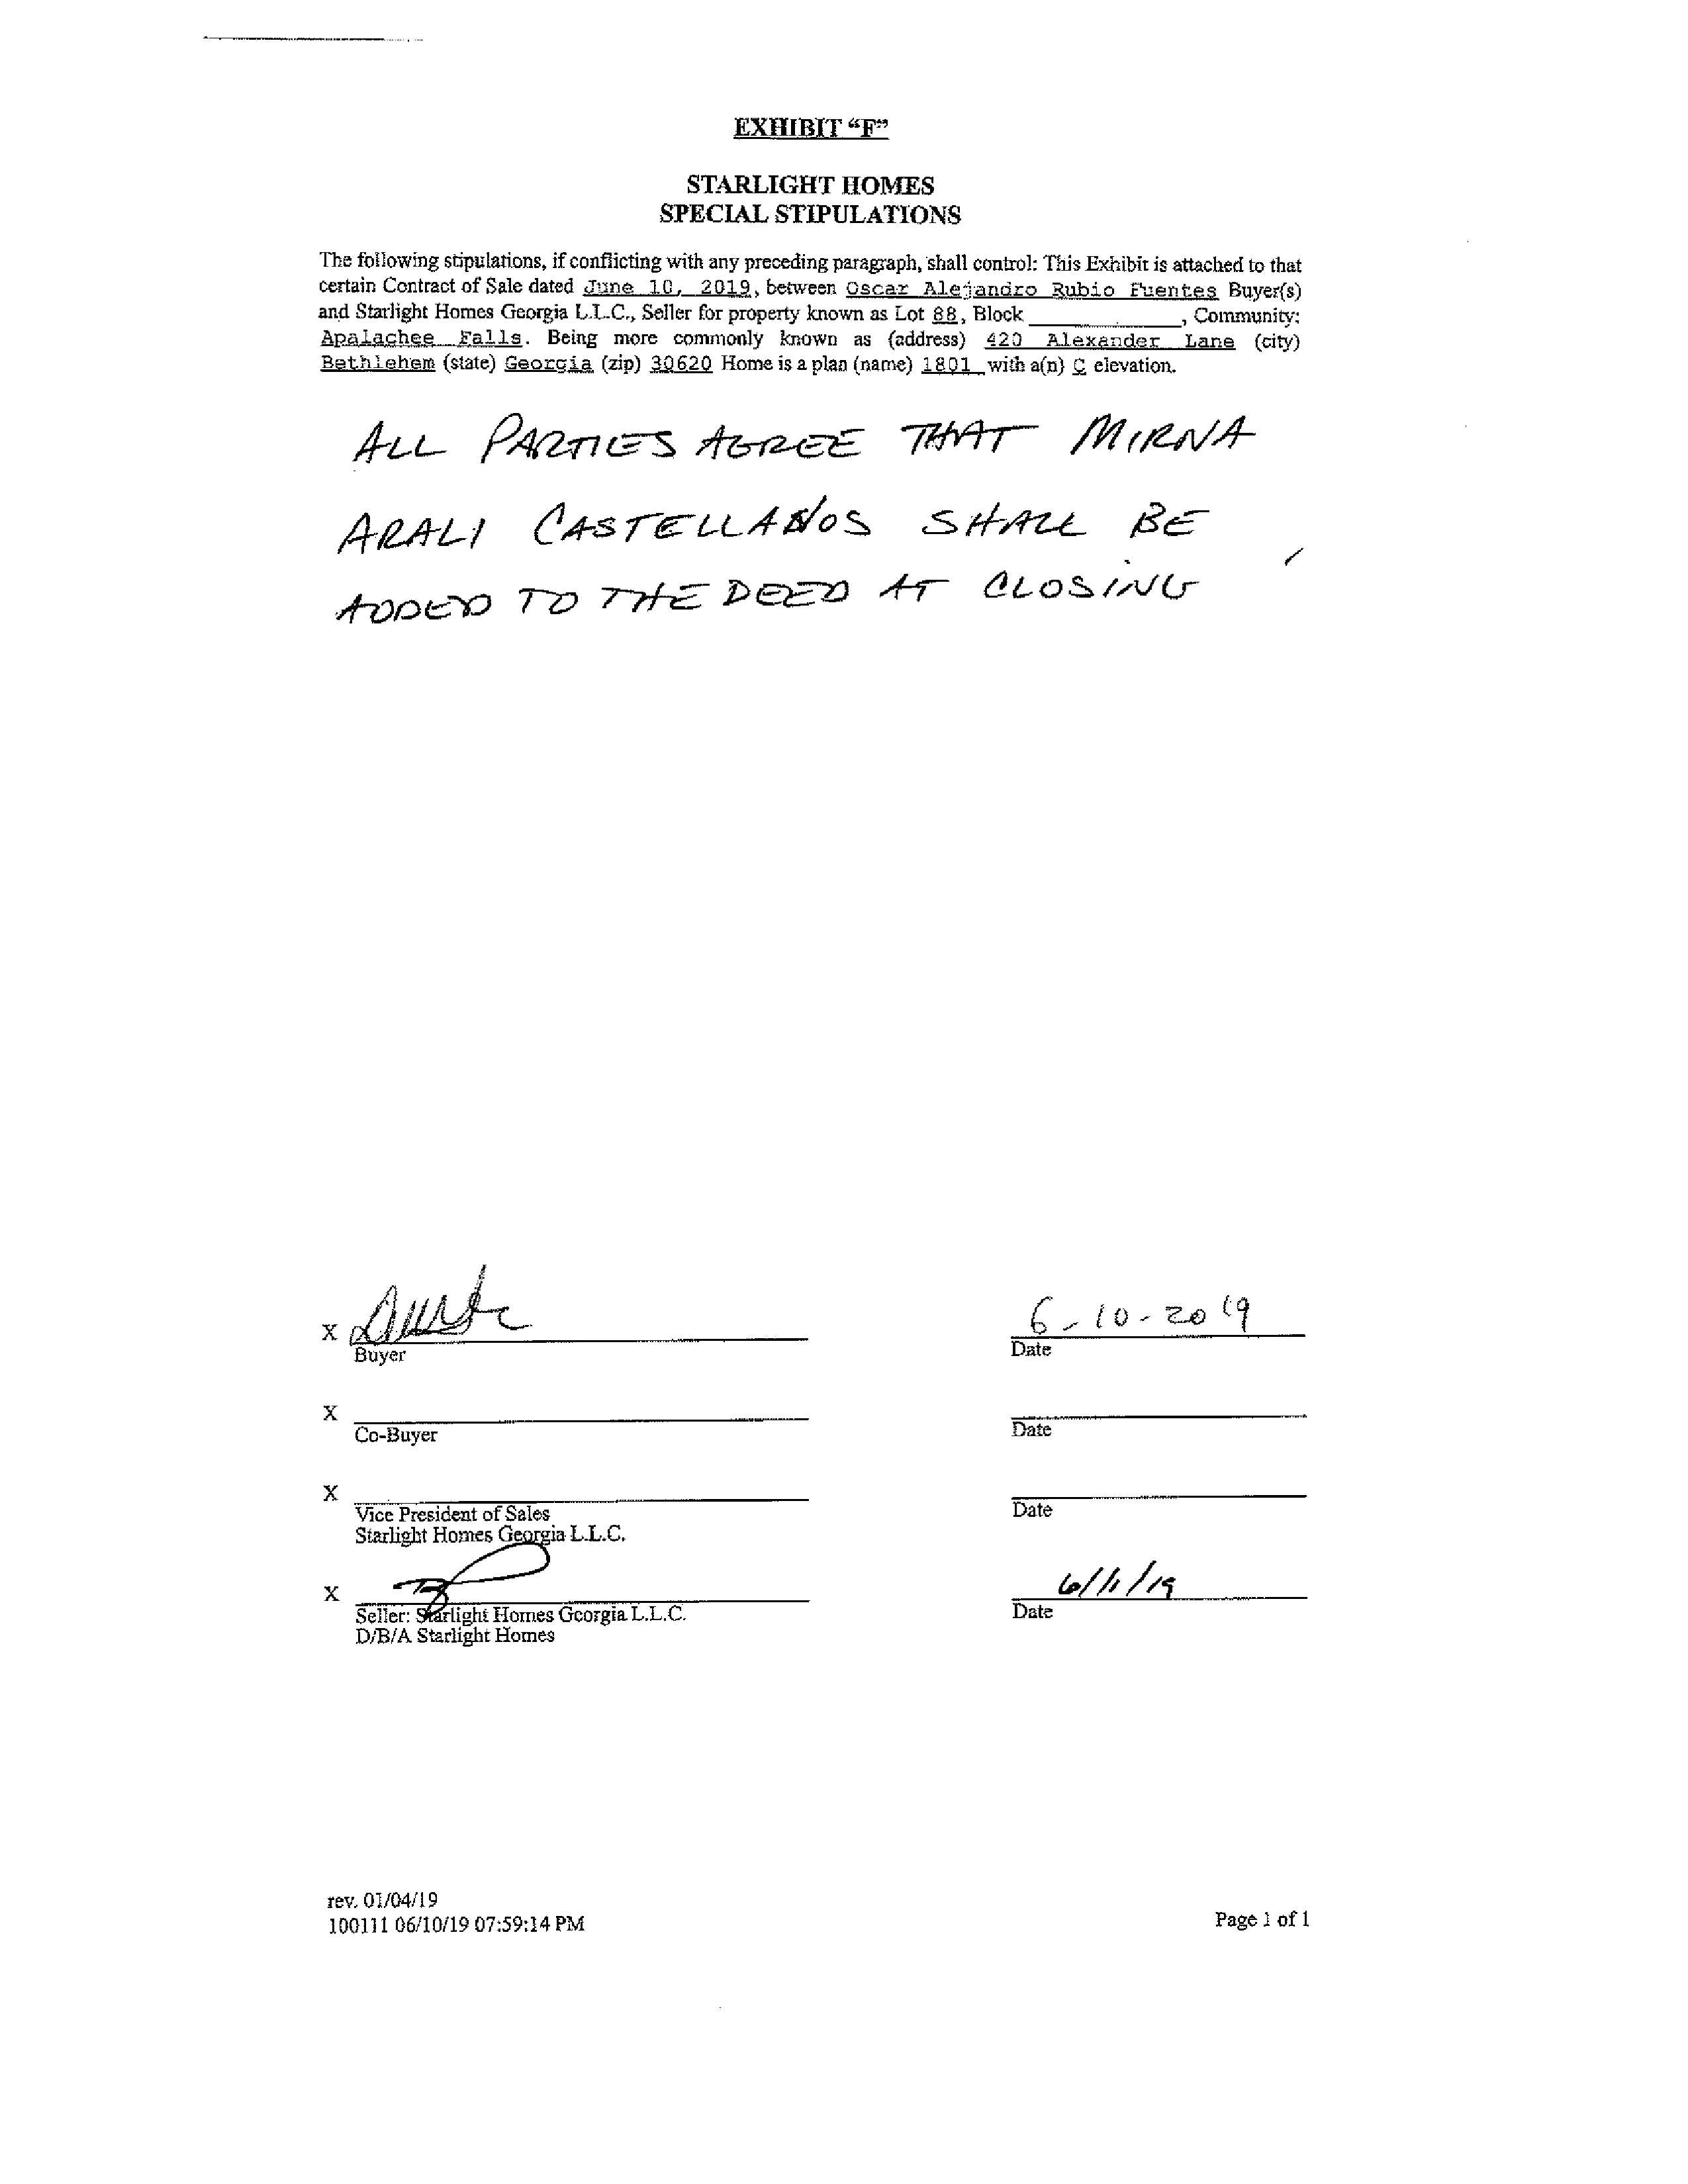 EXHIBIT “F”
STARLIGHT HOMES
SPECIAL STIPULATIONS
The following stipulations, if conflicting with any preceding paragraph, shall control: This Exhibit is attached to that
certain Contract of Sale dated June 10, 2019, between Oscar Alejandro Rubio Fuentes Buyer(s)
and Starlight Homes Georgia L.L.C., Seller for property known as Lot 88, Block ____________, Community:
Apalachee Falls. Being more commonly known as (address) 420 Alexander Lane (city)
Bethlehem (state) Georgia (zip) 30620 Home is a plan (name) 1801 with a(n) C elevation.
ALL PARTIES AGREE THAT MIRNA
ARALI CASTELLANOS SHALL BE
ADDED TO THE DEED AT CLOSING
X
6-10-2019
Buyer
Date
X
Co-Buyer
Date
X
Vice President of Sales
Date
Starlight Homes Georgia L.L.C.
X
6/11/19
Seller: Starlight Homes Georgia L.L.C.
Date
D/B/A Starlight Homes
rev. 01/04/19
100111 06/10/19 07:59:14 PM
Page 1 of 1